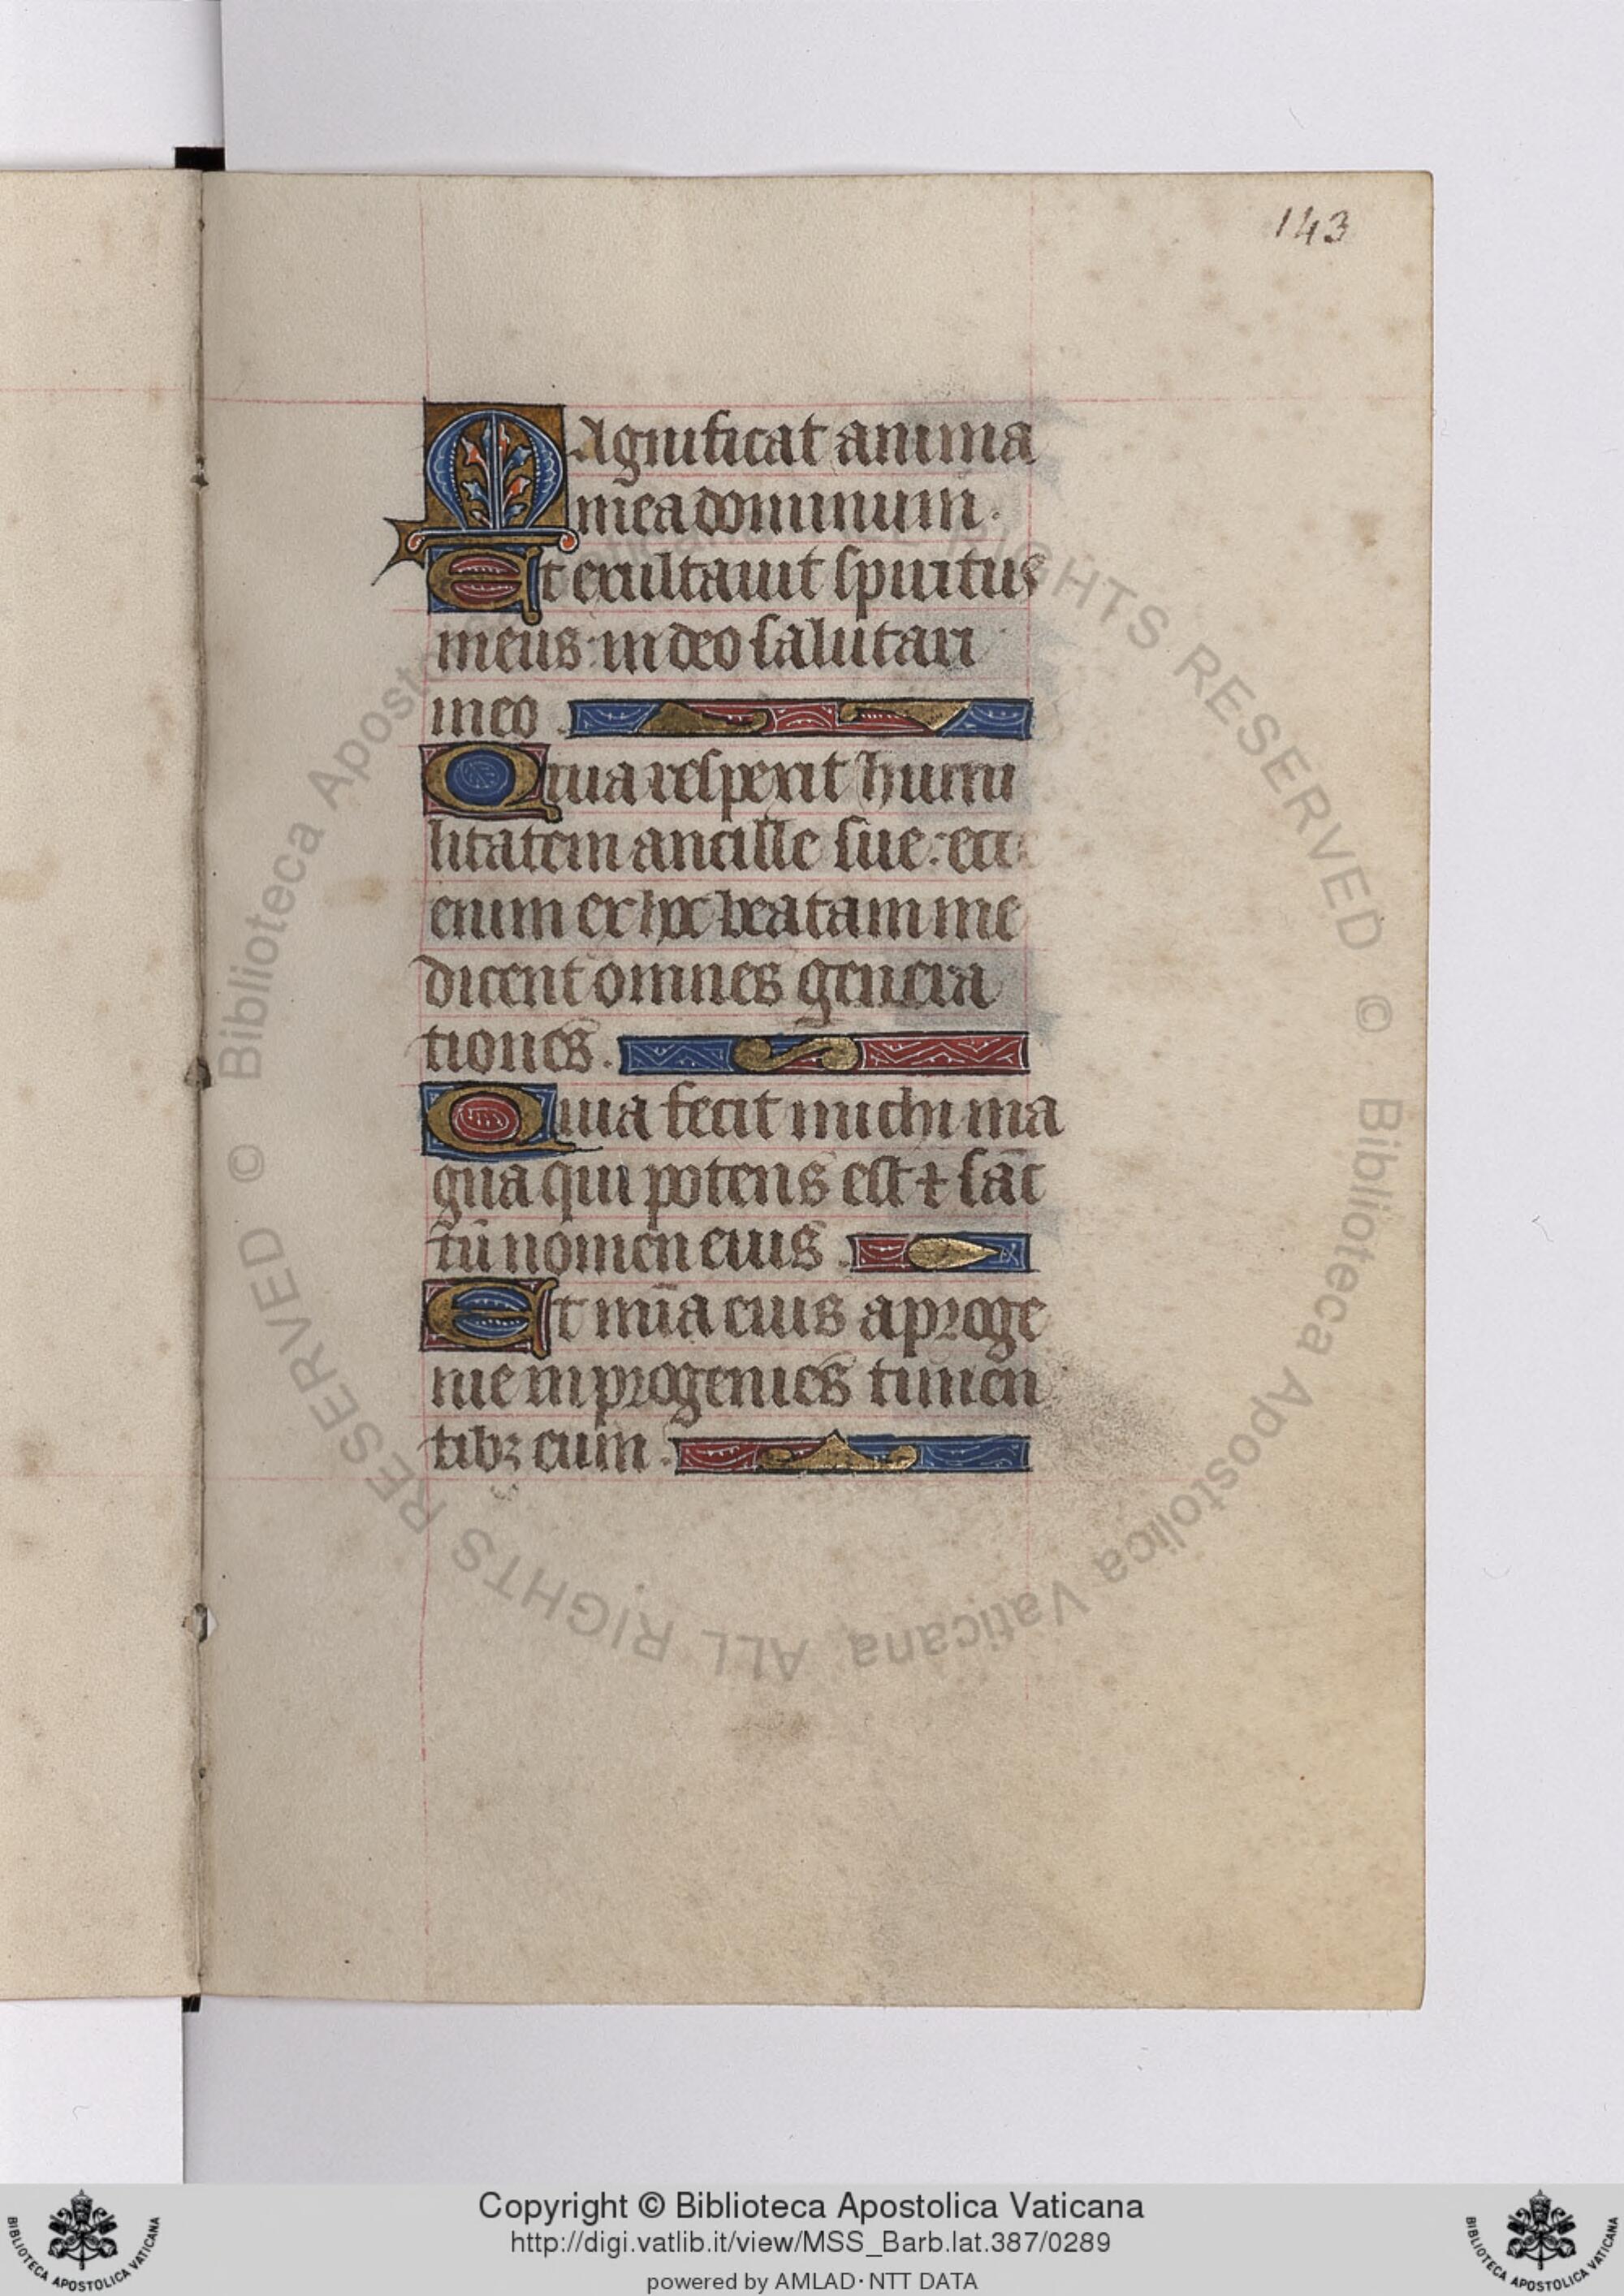 143
Magnificat anima
mea dominum.
Et exultauit spiritus
meus: in deo salutari
meo.
Quia respexit humi
litatem ancille sue: ecce
enim ex hoc beatam me
dicent omnes genera
tiones.
Quia fecit michi ma
gna qui potens est ⁊ sāc
tū nomen eius.
Et mīa eius a proge
nie in progenies timen
tibꝫ eum.
© Biblioteca Apostolica Vaticana ALL RIGHTS RESERVED © Biblioteca Apostolica Vaticana ALL RIGHTS RESERVED
BIBLIOTECA APOSTOLICA VATICANA
Copyright © Biblioteca Apostolica Vaticana
http://digi.vatlib.it/view/MSS_Barb.lat.387/0289
powered by AMLAD·NTT DATA
BIBLIOTECA APOSTOLICA VATICANA